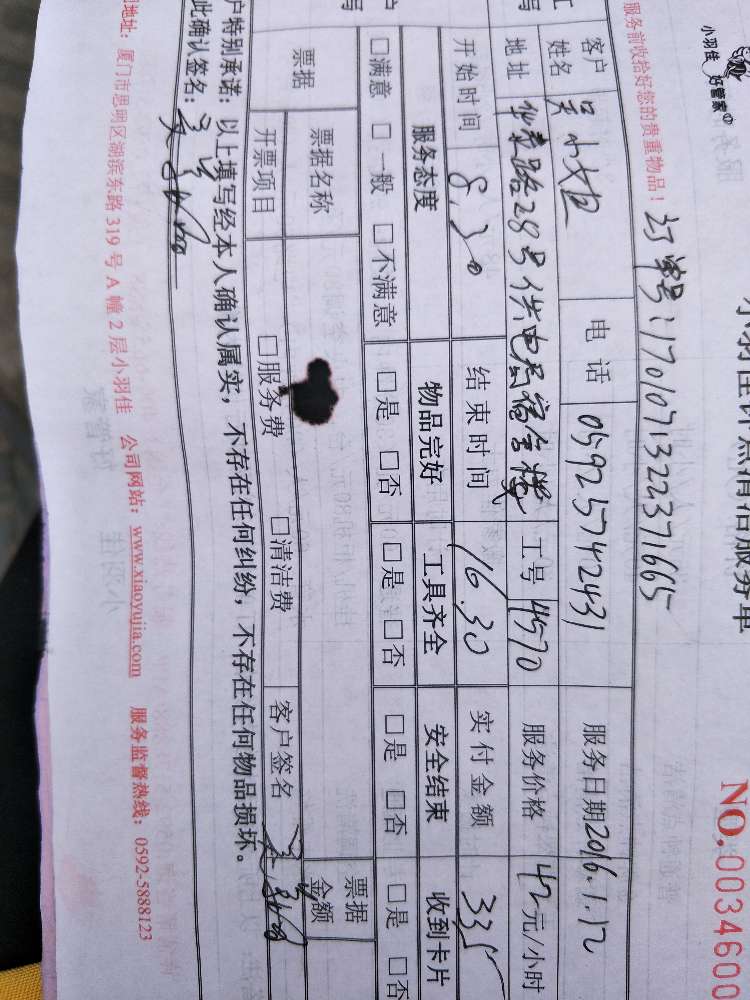 小羽佳 好管家
小羽佳钟点清洁服务单
NO.0034600
服务前收拾好您的贵重物品！ 订单号：1701071322371665
客户姓名 吴小姐 电话 05925742431 服务日期 2016.1.12
地址 28号供电局宿舍楼 工号 4570 服务价格 42元/小时
开始时间 8.30 结束时间 16.30 实付金额 335
服务态度 物品完好 工具齐全 安全结束 收到卡片
□满意 □一般 □不满意 □是 □否 □是 □否 □是 □否 □是 □否
票据 票据名称 票据金额
开票项目 □服务费 □清洁费 客户签名
户特别承诺：以上填写经本人确认属实，不存在任何纠纷，不存在任何物品损坏。
此确认签名：
司地址：厦门市思明区湖滨东路 319 号 A 幢 2 层小羽佳 公司网站：www.xiaoyujia.com 服务监督热线：0592-5888123